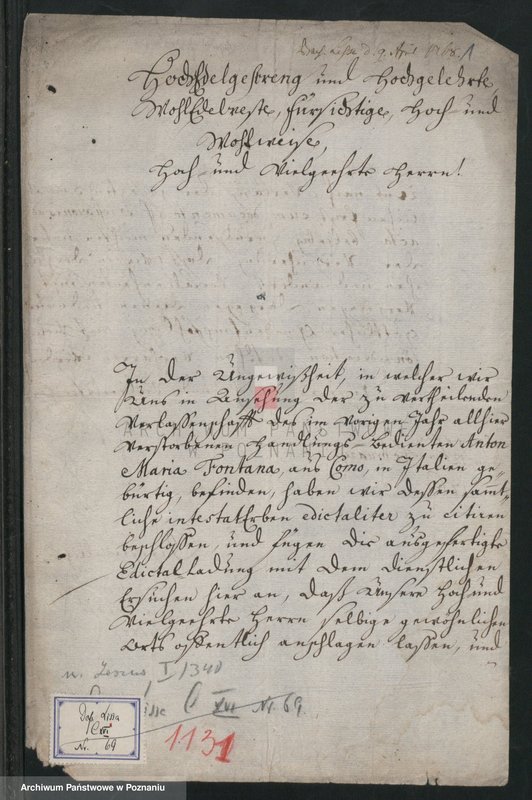 d. 9. April 1768. 1
HochEdelgestreng und Hochgelehrte,
WohlEdelveste, fürsichtige, Hoch- und
Wohlweise,
Hoch- und Vielgeehrte Herrn!
In der Ungewißheit, in welcher wir
Uns in Ansehung der zu vertheilenden
Verlassenschafft des im vorigen Jahr allhier
verstorbenen Handlungs-Bedienten Anton
Maria Fontana, aus Como, in Italien ge-
bürtig, befinden, haben wir dessen sämt-
liche intestatErben edictaliter zu citiren
beschlossen, und fügen die ausgefertigte
Edictalladung mit dem dienstlichen
Ersuchen hier an, daß Unsere Hoch und
Vielgeehrte Herrn selbige gewöhnlichen
Orts öffentlich anschlagen lassen, und
I/1340
C XVI Nr. 69.
1131
Dep. Lissa
C XVI
Nr. 69
Archiwum Państwowe w Poznaniu